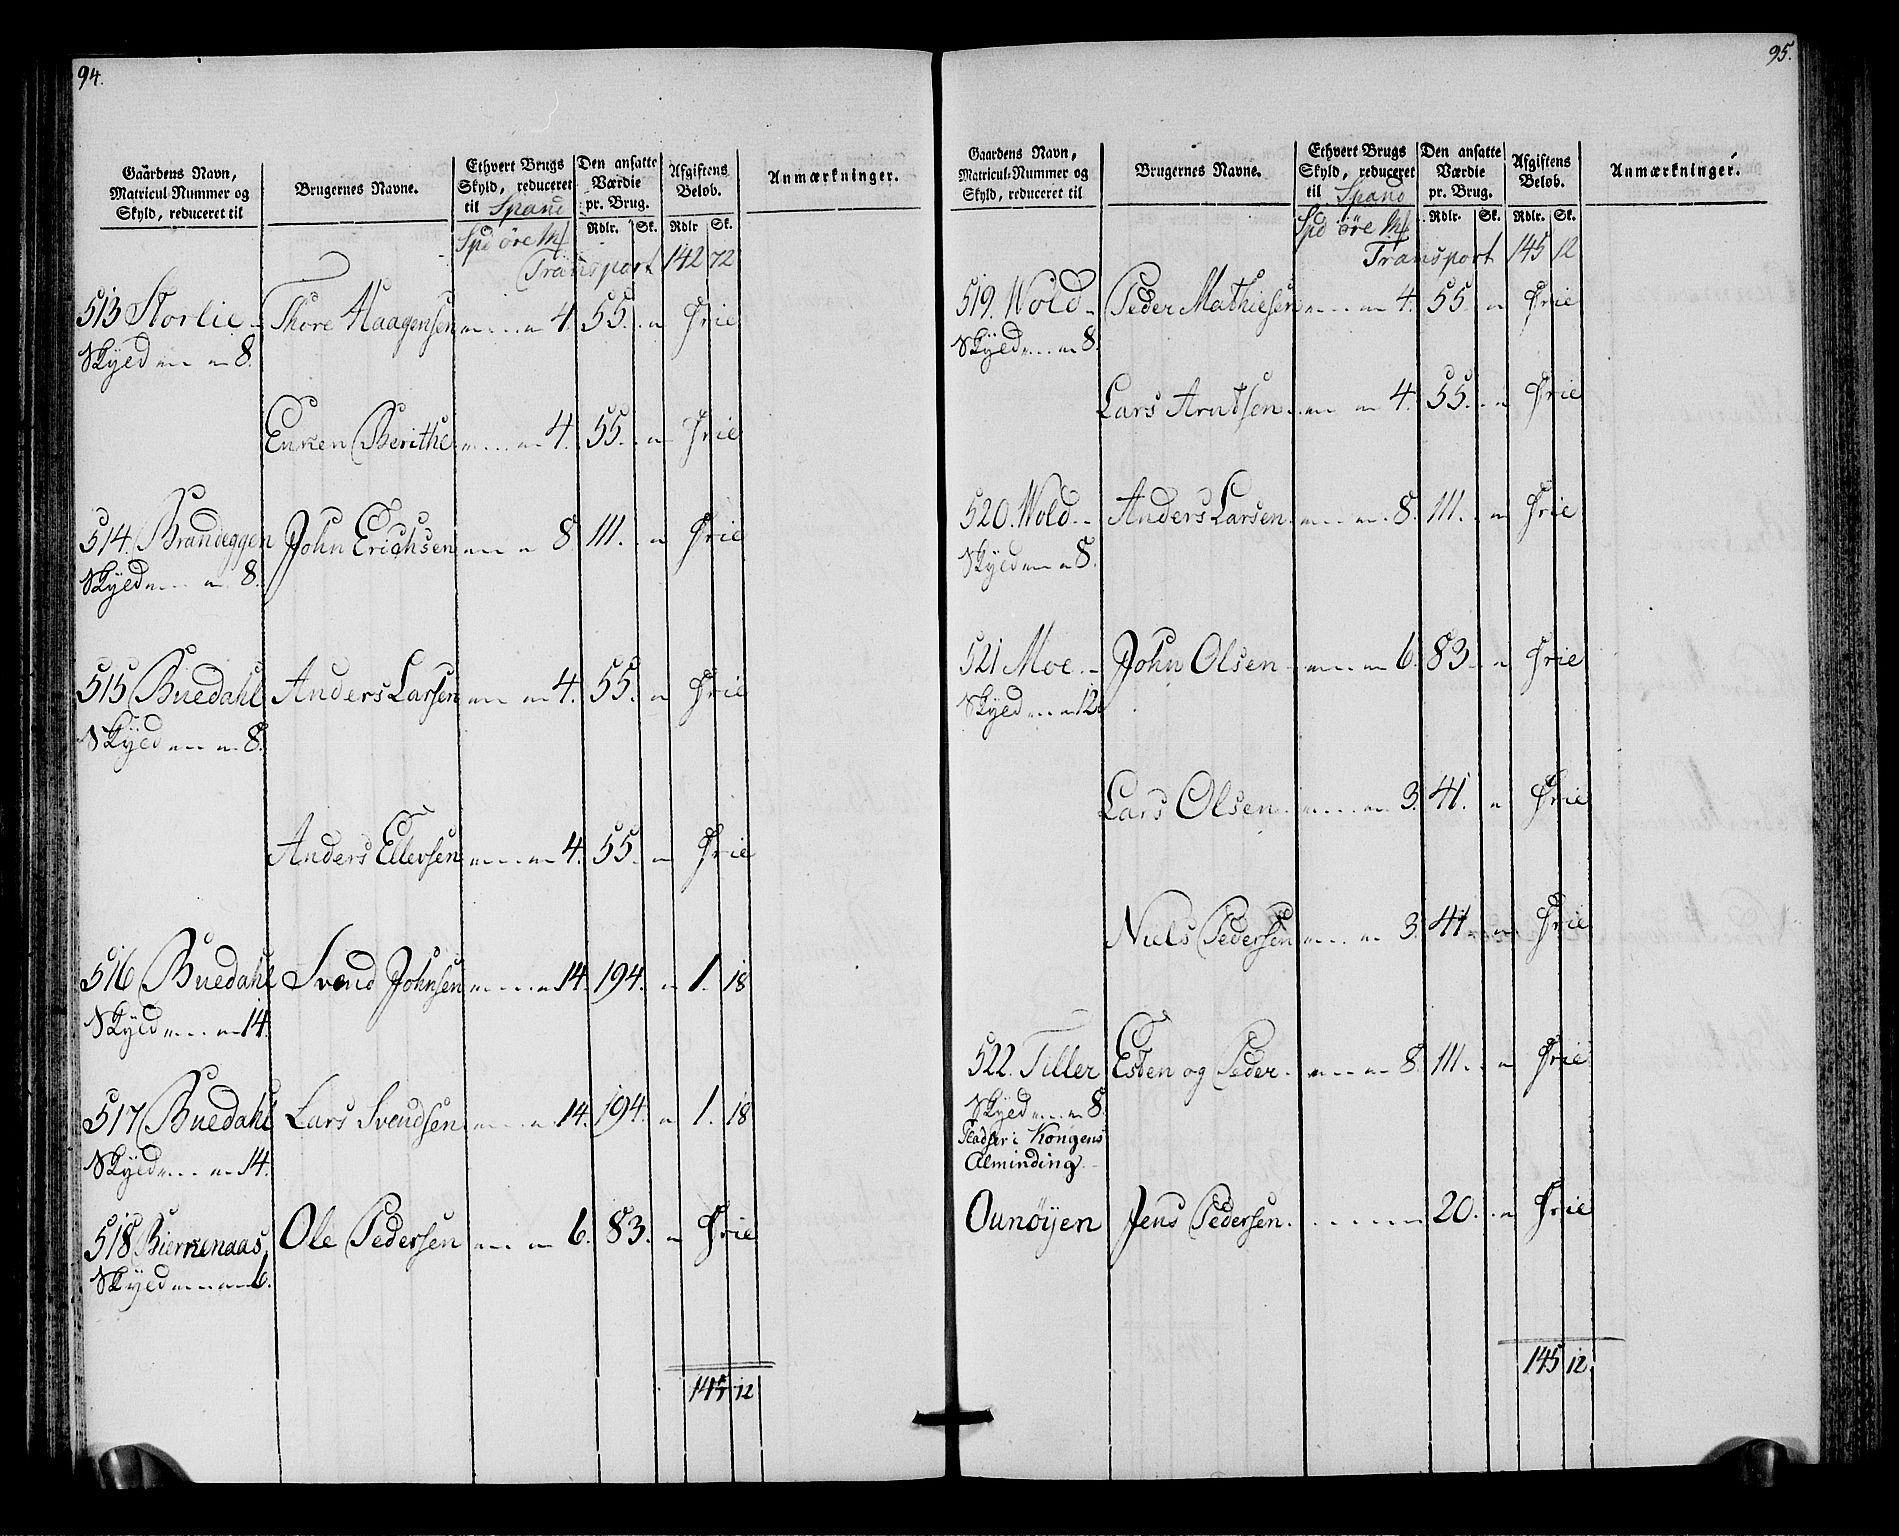 94.
Gaardens Navn, Matricul-Nummer og Skyld, reduceret til | Brugernes Navne. | Ethvert Brugs Skyld, reduceret til Spand | Den ansatte Værdie pr. Brug. | Afgiftens Beløb. | Anmærkninger.
Spd øre Mk | Rdlr. | Sk. | Rdlr | Sk.
Transport 142 72
513 Storlie Thore Haagensen 4. 55. " Frie
Skyld 8.
Enken Berithe 4. 55. " Frie
514. Brandeggen John Erichsen 8. 111. " Frie
Skyld 8.
515 Buedahl Anders Larsen 4. 55. " Frie
Skyld 8.
Anders Ellersen 4. 55. " Frie
516 Buedahl Svend Johnsen 14. 194. " 1. 18
Skyld 14.
517 Buedahl Lars Svendsen 14. 194. " 1. 18
Skyld 14.
518 Bierkenaas Ole Pedersen 6. 83. " Frie
Skyld 6.
145 12
95.
Gaardens Navn, Matricul-Nummer og Skyld, reduceret til | Brugernes Navne. | Ethvert Brugs Skyld, reduceret til Spand | Den ansatte Værdie pr. Brug. | Afgiftens Beløb. | Anmærkninger.
Spd øre Mk | Rdlr. | Sk. | Rdlr. | Sk.
Transport 145 12
519. Wold Peder Mathiesen 4. 55 " Frie
Skyld 8.
Lars Arntsen 4. 55. " Frie
520. Wold Anders Larsen 8. 111. " Frie
Skyld 8.
521 Moe John Olsen 6. 83. " Frie
Skyld 12.
Lars Olsen 3. 41. " Frie
Niels Pedersen 3. 41 " Frie
522. Tiller Esten og Peder 8. 111. " Frie
Skyld 8.
Pladser i Kongens
Alminding
Ounøyen Jens Pedersen. 20. " Frie
145 12